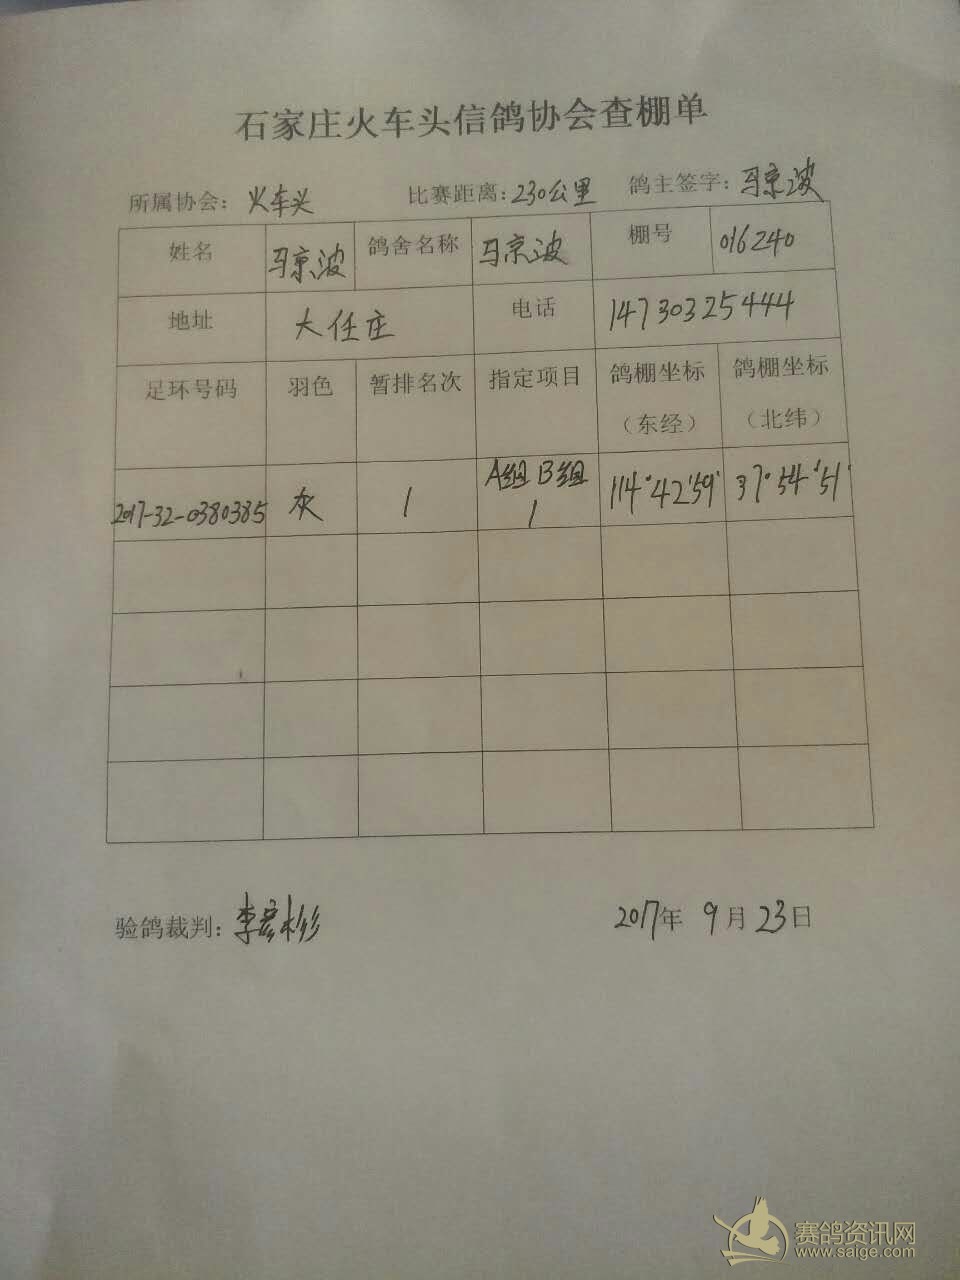 石家庄火车头信鸽协会查棚单
所属协会：火车头 比赛距离：230公里 鸽主签字：马京波
姓名 马京波 鸽舍名称 马京波 棚号 016240
地址 大任庄 电话 14730325444
足环号码 羽色 暂排名次 指定项目 鸽棚坐标 鸽棚坐标
（东经） （北纬）
2017-32-0380385 灰 1 A组 B组 114°42′59′ 37°54′51′
1
验鸽裁判：李彦彬 2017年 9月23日
赛鸽资讯网
www.saige.com